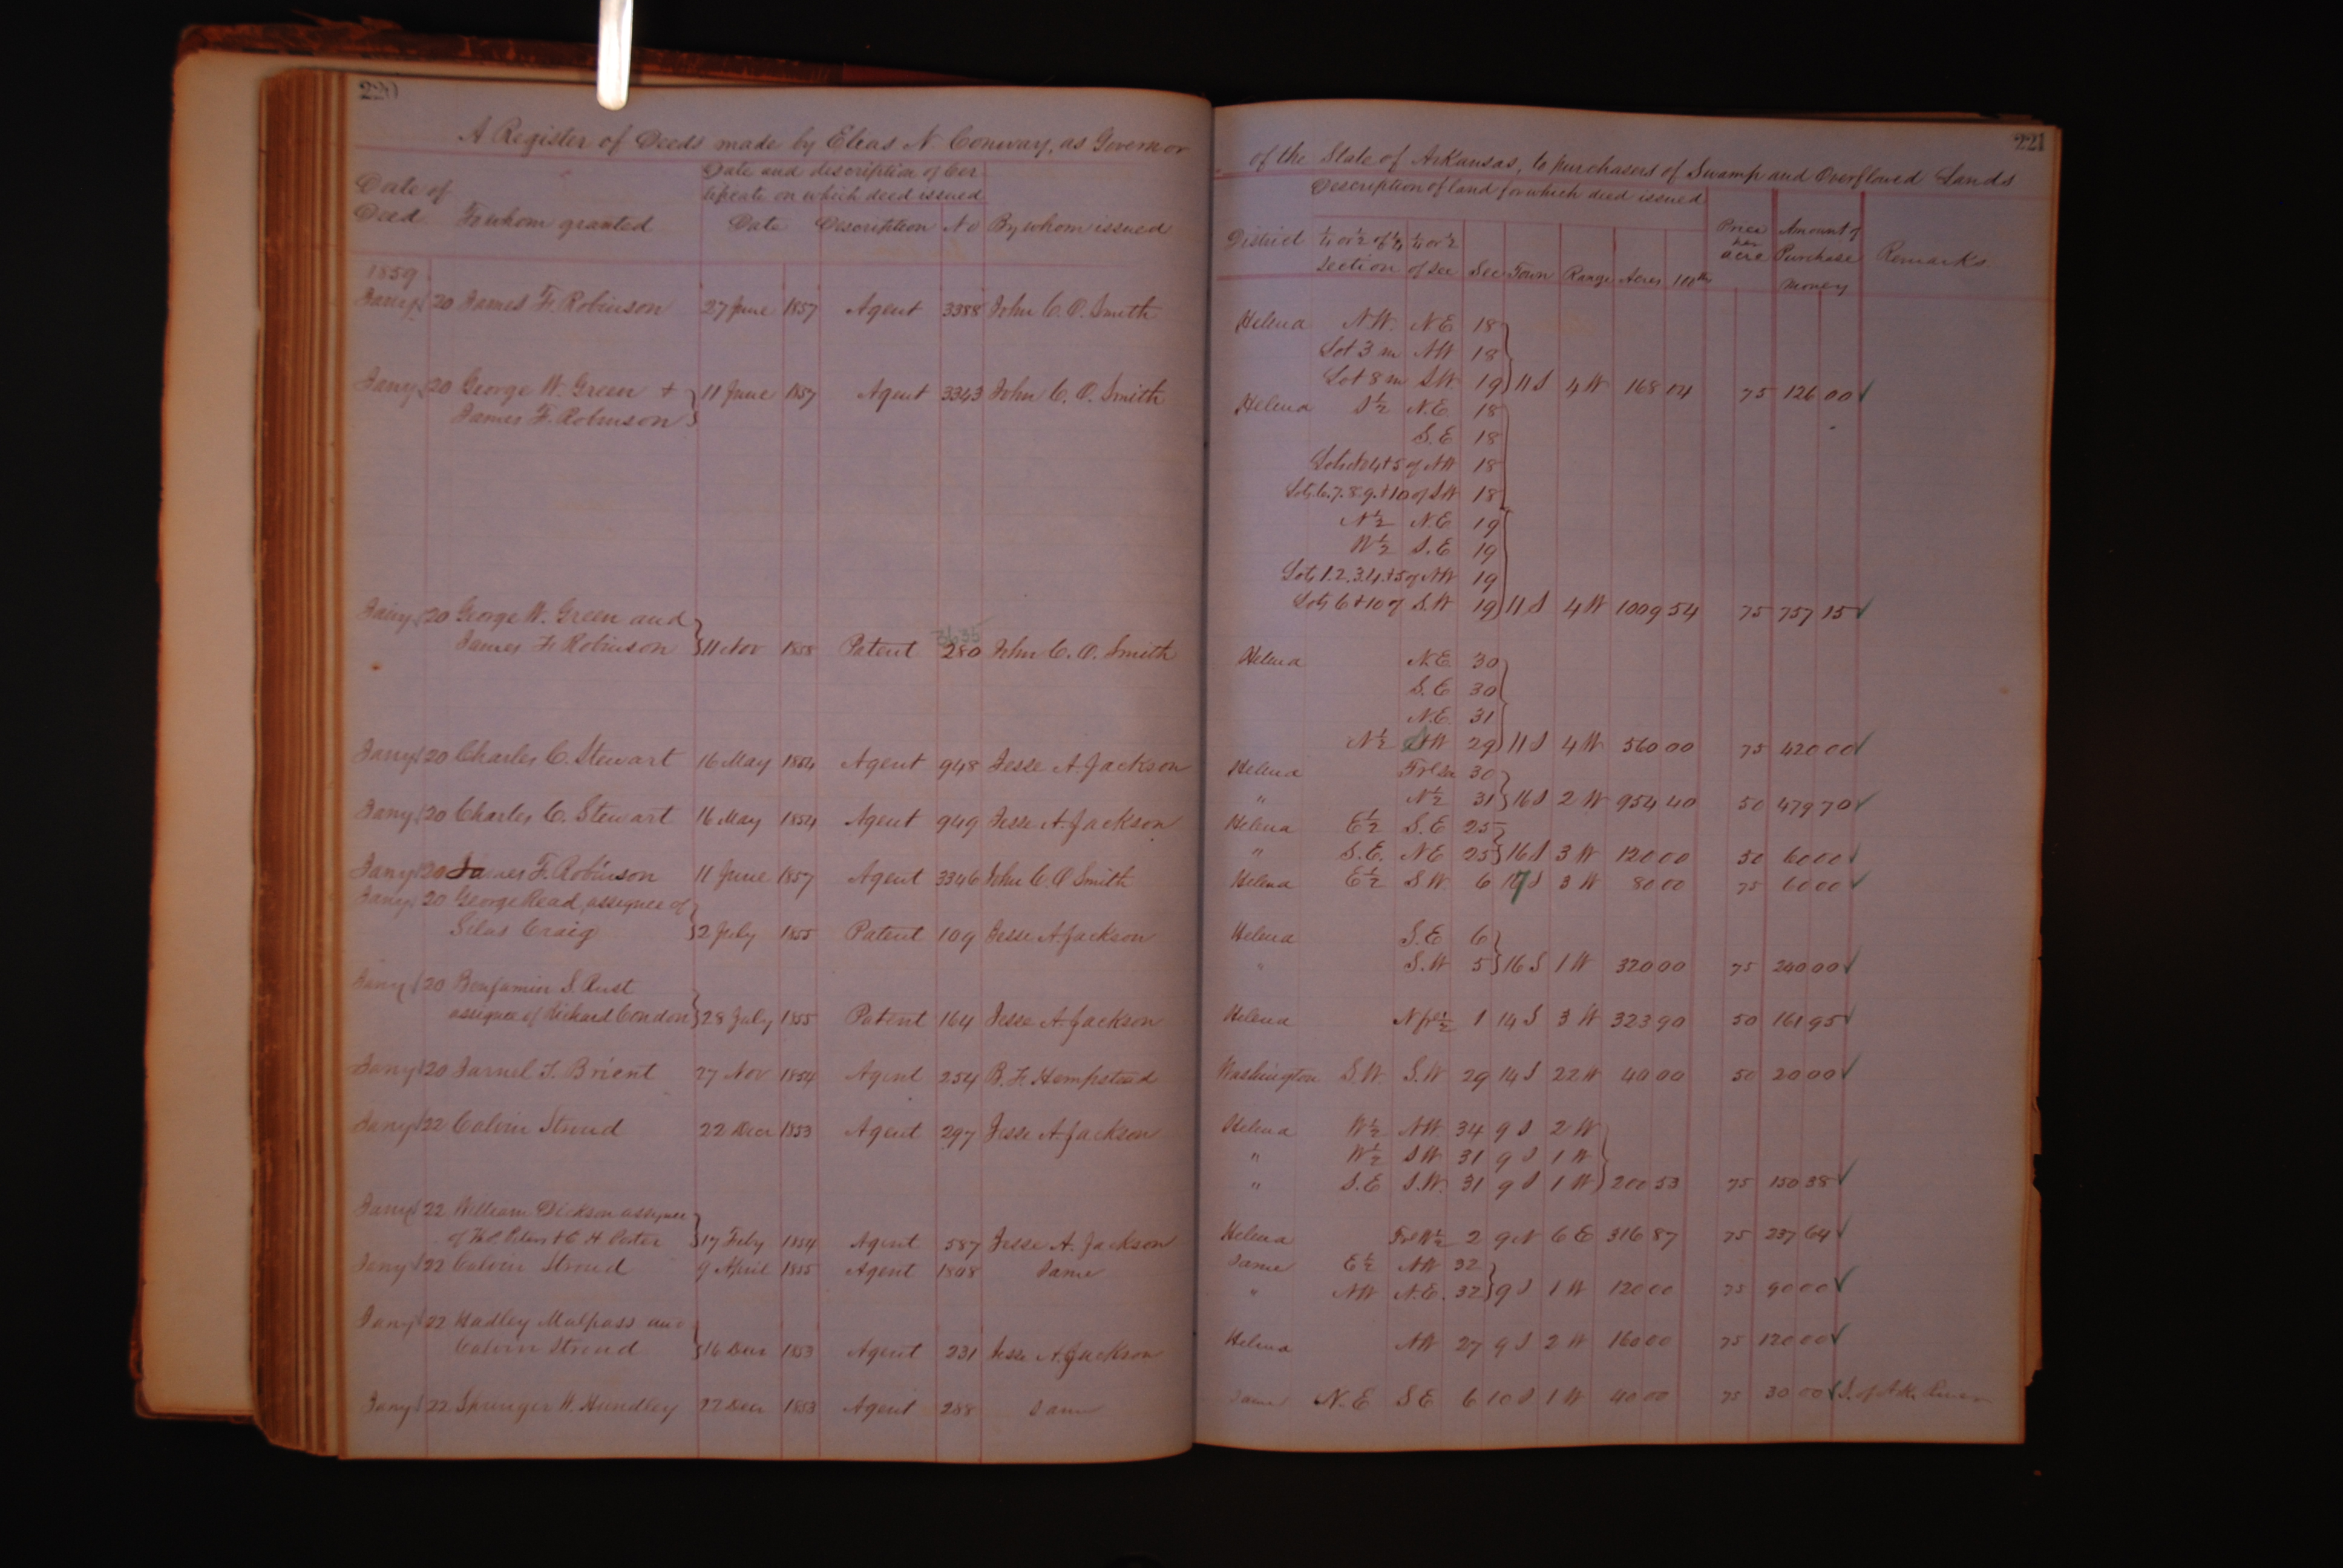 220
A Register of Deeds made by Elias N. Conway, as Governor
Date of Deed To whom granted Date and discription of Cer tificate on which deed issued
Date Description No By whom issued
1859
Jany 20 James F. Robinson 27 June 1857 Agent 3388 John C. O. Smith
Jany 20 George W. Green + 11 June 1857 Agent 3343 John C. O. Smith
James F. Robinson
Jany 20 George W. Green and 3635
James F. Robinson 11 Nov 1858 Patent 280 John C. O. Smith
Jany 20 Charles C. Stewart 16 May 1854 Agent 948 Jesse A. Jackson
Jany 20 Charles C. Stewart 16 May 1854 Agent 949 Jesse A. Jackson
Jany 20 James F. Robinson 11 June 1857 Agent 3346 John C. O Smith
Jany 20 George Read, assignee of
Silas Craig 2 July 1855 Patent 109 Jesse A Jackson
Jany 20 Benjamin S. Rust
assignee of Richard Condon 28 July 1855 Patent 164 Jesse A. Jackson
Jany 20 Jarnel T. Brient 27 Nov 1854 Agent 254 B. F. Hempstead
Jany 22 Calvin Stroud 22 Decr 1853 Agent 297 Jesse A. Jackson
Jany 22 William Dickson assignee
of Porter 17 Feby 1854 Agent 587 Jesse A. Jackson
Jany 22 Calvin Stroud 9 April 1855 Agent 1808 Same
Jany 22 Hadley Malpass and
Calvin Stroud 16 Decr 1853 Agent 231 Jesse A. Jackson
Jany 22 Springer H. Hundley 22 Decr 1853 Agent 288 Same
221
of the State of Arkansas, to purchasers of Swamp and Overflowed Lands
Description of land for which deed issued
District ¼ or ½ of ¼ Section ¼ or ½ of Sec Sec Town Range Acres 100ths Price per acre Amount of Purchase Money Remarks
Helena N.W. N.E 18
Lot 3 in NW 18
Lot 8 in S.W. 19 11 S 4 W 168 04 75 126 00 ✓
Helena S½ N.E 18
S.E 18
4+5 of NW 18
Lots 6.7.8.9.+10 of SW 18
N½ N.E 19
W½ S.E 19
Lots 1.2.3.4.+5 of NW 19
Lots 6+10 of S.W 19 11 S 4 W 1009 54 75 757 15 ✓
Helena N.E 30
S.E 30
N.E. 31
N½ SW 29 11 S 4 W 560 00 75 420 00 ✓
Helena Frl Sec 30
" N½ 31 16 S 2 W 954 40 50 479 70 ✓
Helena E½ S.E 25
" S.E. NE 25 16 S 3 W 120 00 50 60 00 ✓
Helena E½ S.W. 6 17 S 3 W 80 00 75 60 00 ✓
Helena S.E 6
" S.W 5 16 S 1 W 320 00 75 240 00 ✓
Helena N frl ½ 1 14 S 3 W 323 90 50 161 95 ✓
Washington S.W. S.W 29 14 S 22 W 40 00 50 20 00 ✓
Helena W½ NW. 34 9 S 2 W
" W½ SW 31 9 S 1 W
" S.E S.W. 31 9 S 1 W 200 53 75 150 38 ✓
Helena Frl W½ 2 9 N 6 E 316 87 75 237 64 ✓
Same E½ NW 32
" NW N.E. 32 9 S 1 W 120 00 75 90 00 ✓
Helena NW 27 9 S 2 W 160 00 75 120 00 ✓
Same N.E S E 6 10 S 1 W 40 00 75 30 00 ✓ S. of Ark. River